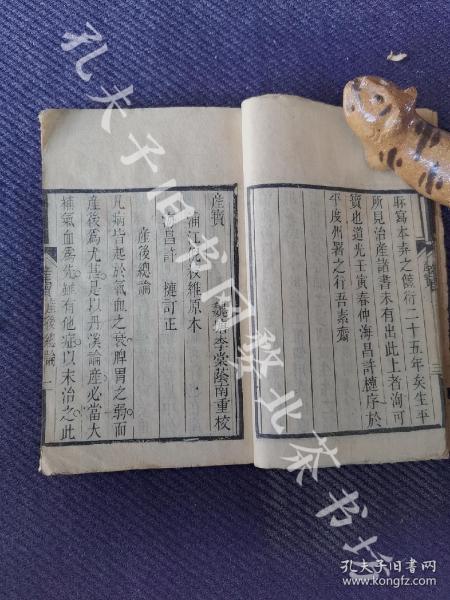 脈寫本弆之篋衍二十五年矣生平
所見治產諸書未有出此上者洵可
寶也道光壬寅春仲海昌許槤序於
平度州署之行吾素齋
三
產寶
浦江 後維原本
海昌許 槤訂正
李棠蔭南重校
產後總論
凡病皆起於氣血之衰脾胃之弱而
產後爲尤甚是以丹溪論產必當大
補氣血爲先雖有他症以末治之此
產寶 產後總論 一
孔夫子旧书网
北茶书坊
孔夫子旧书网
www.kongfz.com